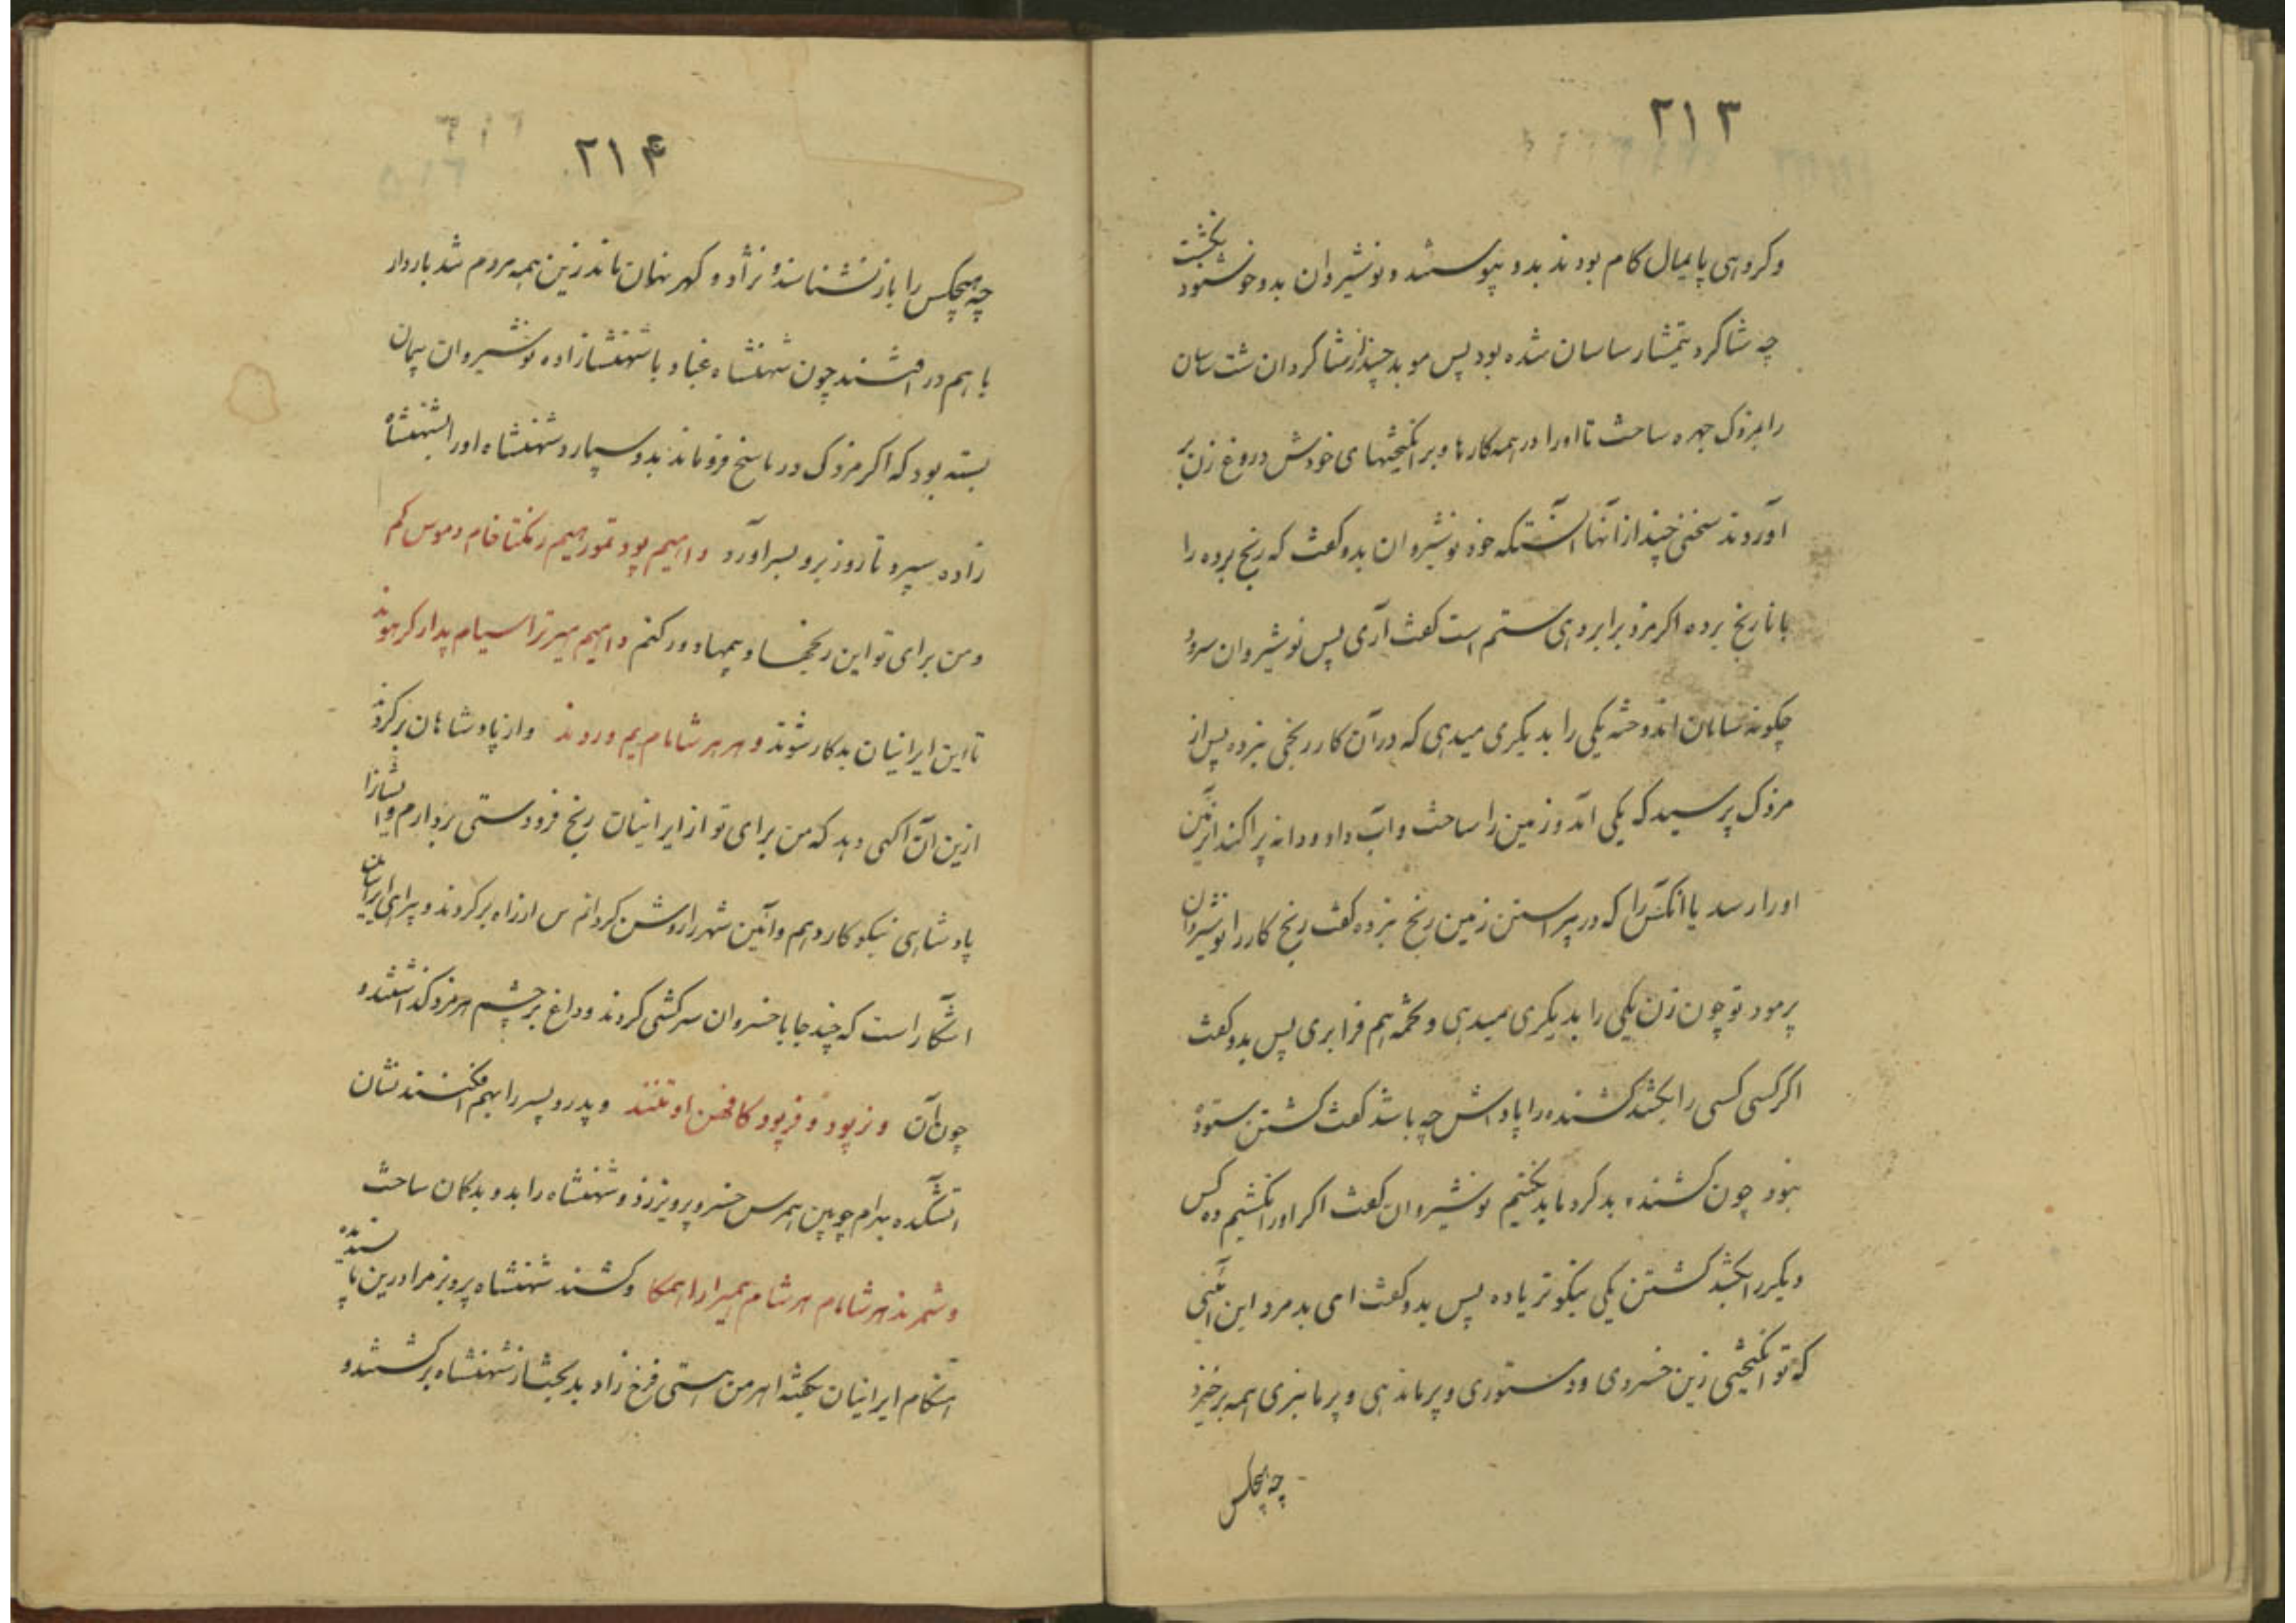 ۲۱۳
وکروهی پایمال کام بودند بدو پیوستند و نوشیروان بدو خوشنود نکشت
چه شاکرد تیمسار ساسان شده بود پس موبد چند از شاکردان شت ساسان
را بمزدک چهره ساخت تا او را در همه کارها و برانکیختهای خودش دروغ زن بر
آوردند سخنی چند از آنها آنستکه خود نوشیروان بدو کفت که رنج برده را
با نارنج برده اکر مزد برابر دهی ستم است کفت آری پس نوشیروان سرود
چکونه سامان اندوخته یکی را بدیکری میدهی که در آن کار رنجی نبرده پس از
مزدک پرسید که یکی آمد و زمین را ساخت و آب داد و دانه پراکند ازین زمین
او را رسد یا آنکس را که در پیراستن زمین رنج نبرده کفت رنج کار را نوشیروان
پرمود تو چون زن یکی را بدیکری میدهی و تخمه بهم فرا بری پس بدو کفت
اکر کسی کسی را بکشد کشنده را پاداش چه باشد کفت کشتن ستوده
نبود چون کشنده بد کرد ما بد نکنیم نوشیروان کفت اکر او را نکشیم ده کس
دیکر را بکشد کشتن یکی نیکوتر یا ده پس بدو کفت ای بد مرد این آئینی
که تو انکیختی زین خسروی و دستوری و پرماندهی و پرمانبری همه برخیزد
چه هیچکس
۲۱۴
چه هیچکس را باز نشناسند و نژاد و کهر نهان ماند زین همه مردم شد باردار
با هم در افتند چون شهنشاه غباد با شهنشازاده نوشیروان پیمان
بسته بود که اکر مزدک در پاسخ فرو ماند بدو سپارد شهنشاه او را بشهنشاه
زاده سپرد تا روز برو بسر آورد و امهیم پود تمور هیم رنکتا فام دموس کم
و من برای تو این رنجها و بیمها دور کنم و امهیم میرترا سیام پدار کر هوند
تا این ایرانیان بدکار شوند و هر هر شامام یم وروند و از پادشاهان بر کردند
ازین آن آکهی دهد که من برای تو از ایرانیان رنج فرودستی بردارم و ایشانرا
پادشاهی نیکوکار دهم و آئین شهر را روشن کردانم پس از راه بر کردند و برای ایرانیان
آشکار است که چند جا با خسروان سرکشی کردند و داغ بر چشم هرمزد کذاشتند و
چون آن و نرپود و فرپود کافهن اوتنند و پدر و پسر را بهم افکنند نشان
آتشکده بهرام چوبین همرس خسرو پرویز زد و شهنشاه را بدو بدکمان ساخت
و شمرند هر شامام هر شام همیرا را اهمکا و کشتند شهنشاه پرویز مرا درین پا سنده
هنکام ایرانیان بکفته اهرمن هستی فرخ زاد بد بخت از شهنشاه بر کشتند و